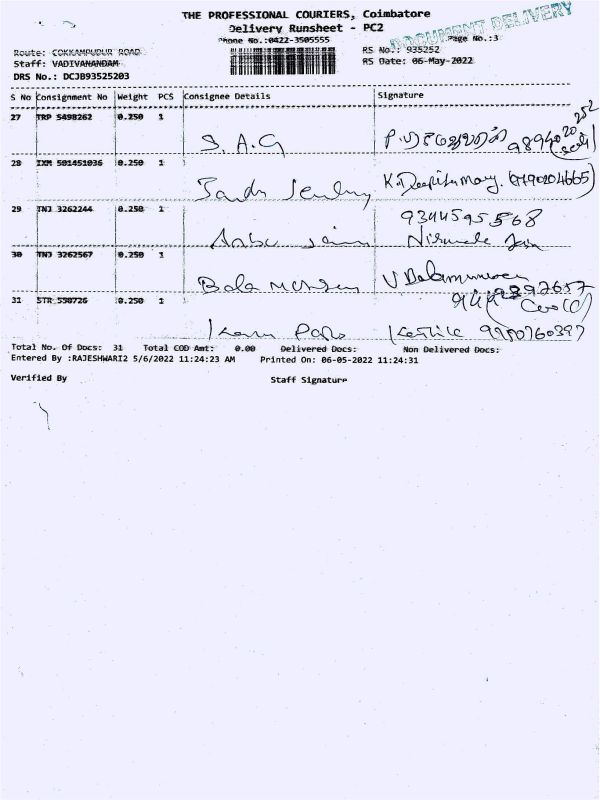 THE PROFESSIONAL COURIERS, Coimbatore
Delivery Runsheet - PC2
DOCUMENT DELIVERY
Phone No.:0422-3505555
Page No.:3
Route: COKKAMPUDUR ROAD
RS No.: 935252
Staff: VADIVANANDAM
RS Date: 06-May-2022
DRS No.: DCJB93525203
S No Consignment No Weight PCS Consignee Details Signature
27 TRP 5498262 0.250 1
S. A. G
28 IXM 501451036 0.250 1
K. Deepika mary.
29 TNJ 3262244 0.250 1
9344595568
30 TNJ 3262567 0.250 1
Bala
31 STR 558726 0.250 1
Total No. Of Docs: 31 Total COD Amt: 0.00 Delivered Docs: Non Delivered Docs:
Entered By :RAJESHWARI2 5/6/2022 11:24:23 AM Printed On: 06-05-2022 11:24:31
Verified By Staff Signature